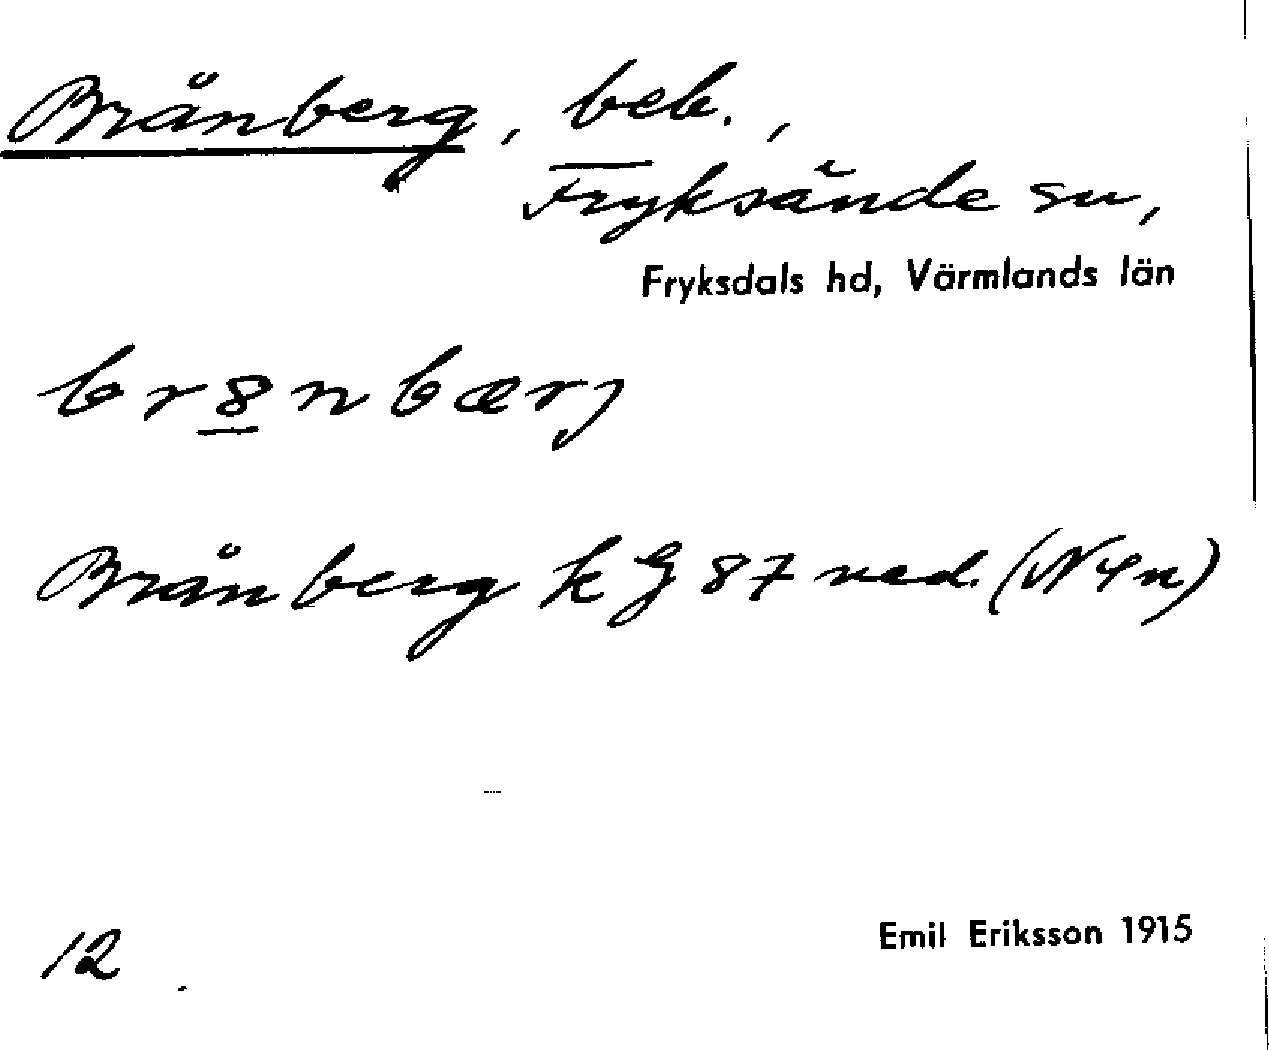 Brånberg, beb.,
Fryksände sn,
Fryksdals hd, Värmlands län
br8nbærj
Brånberg k G 87 ned. (N4n)
12
Emil Eriksson 1915